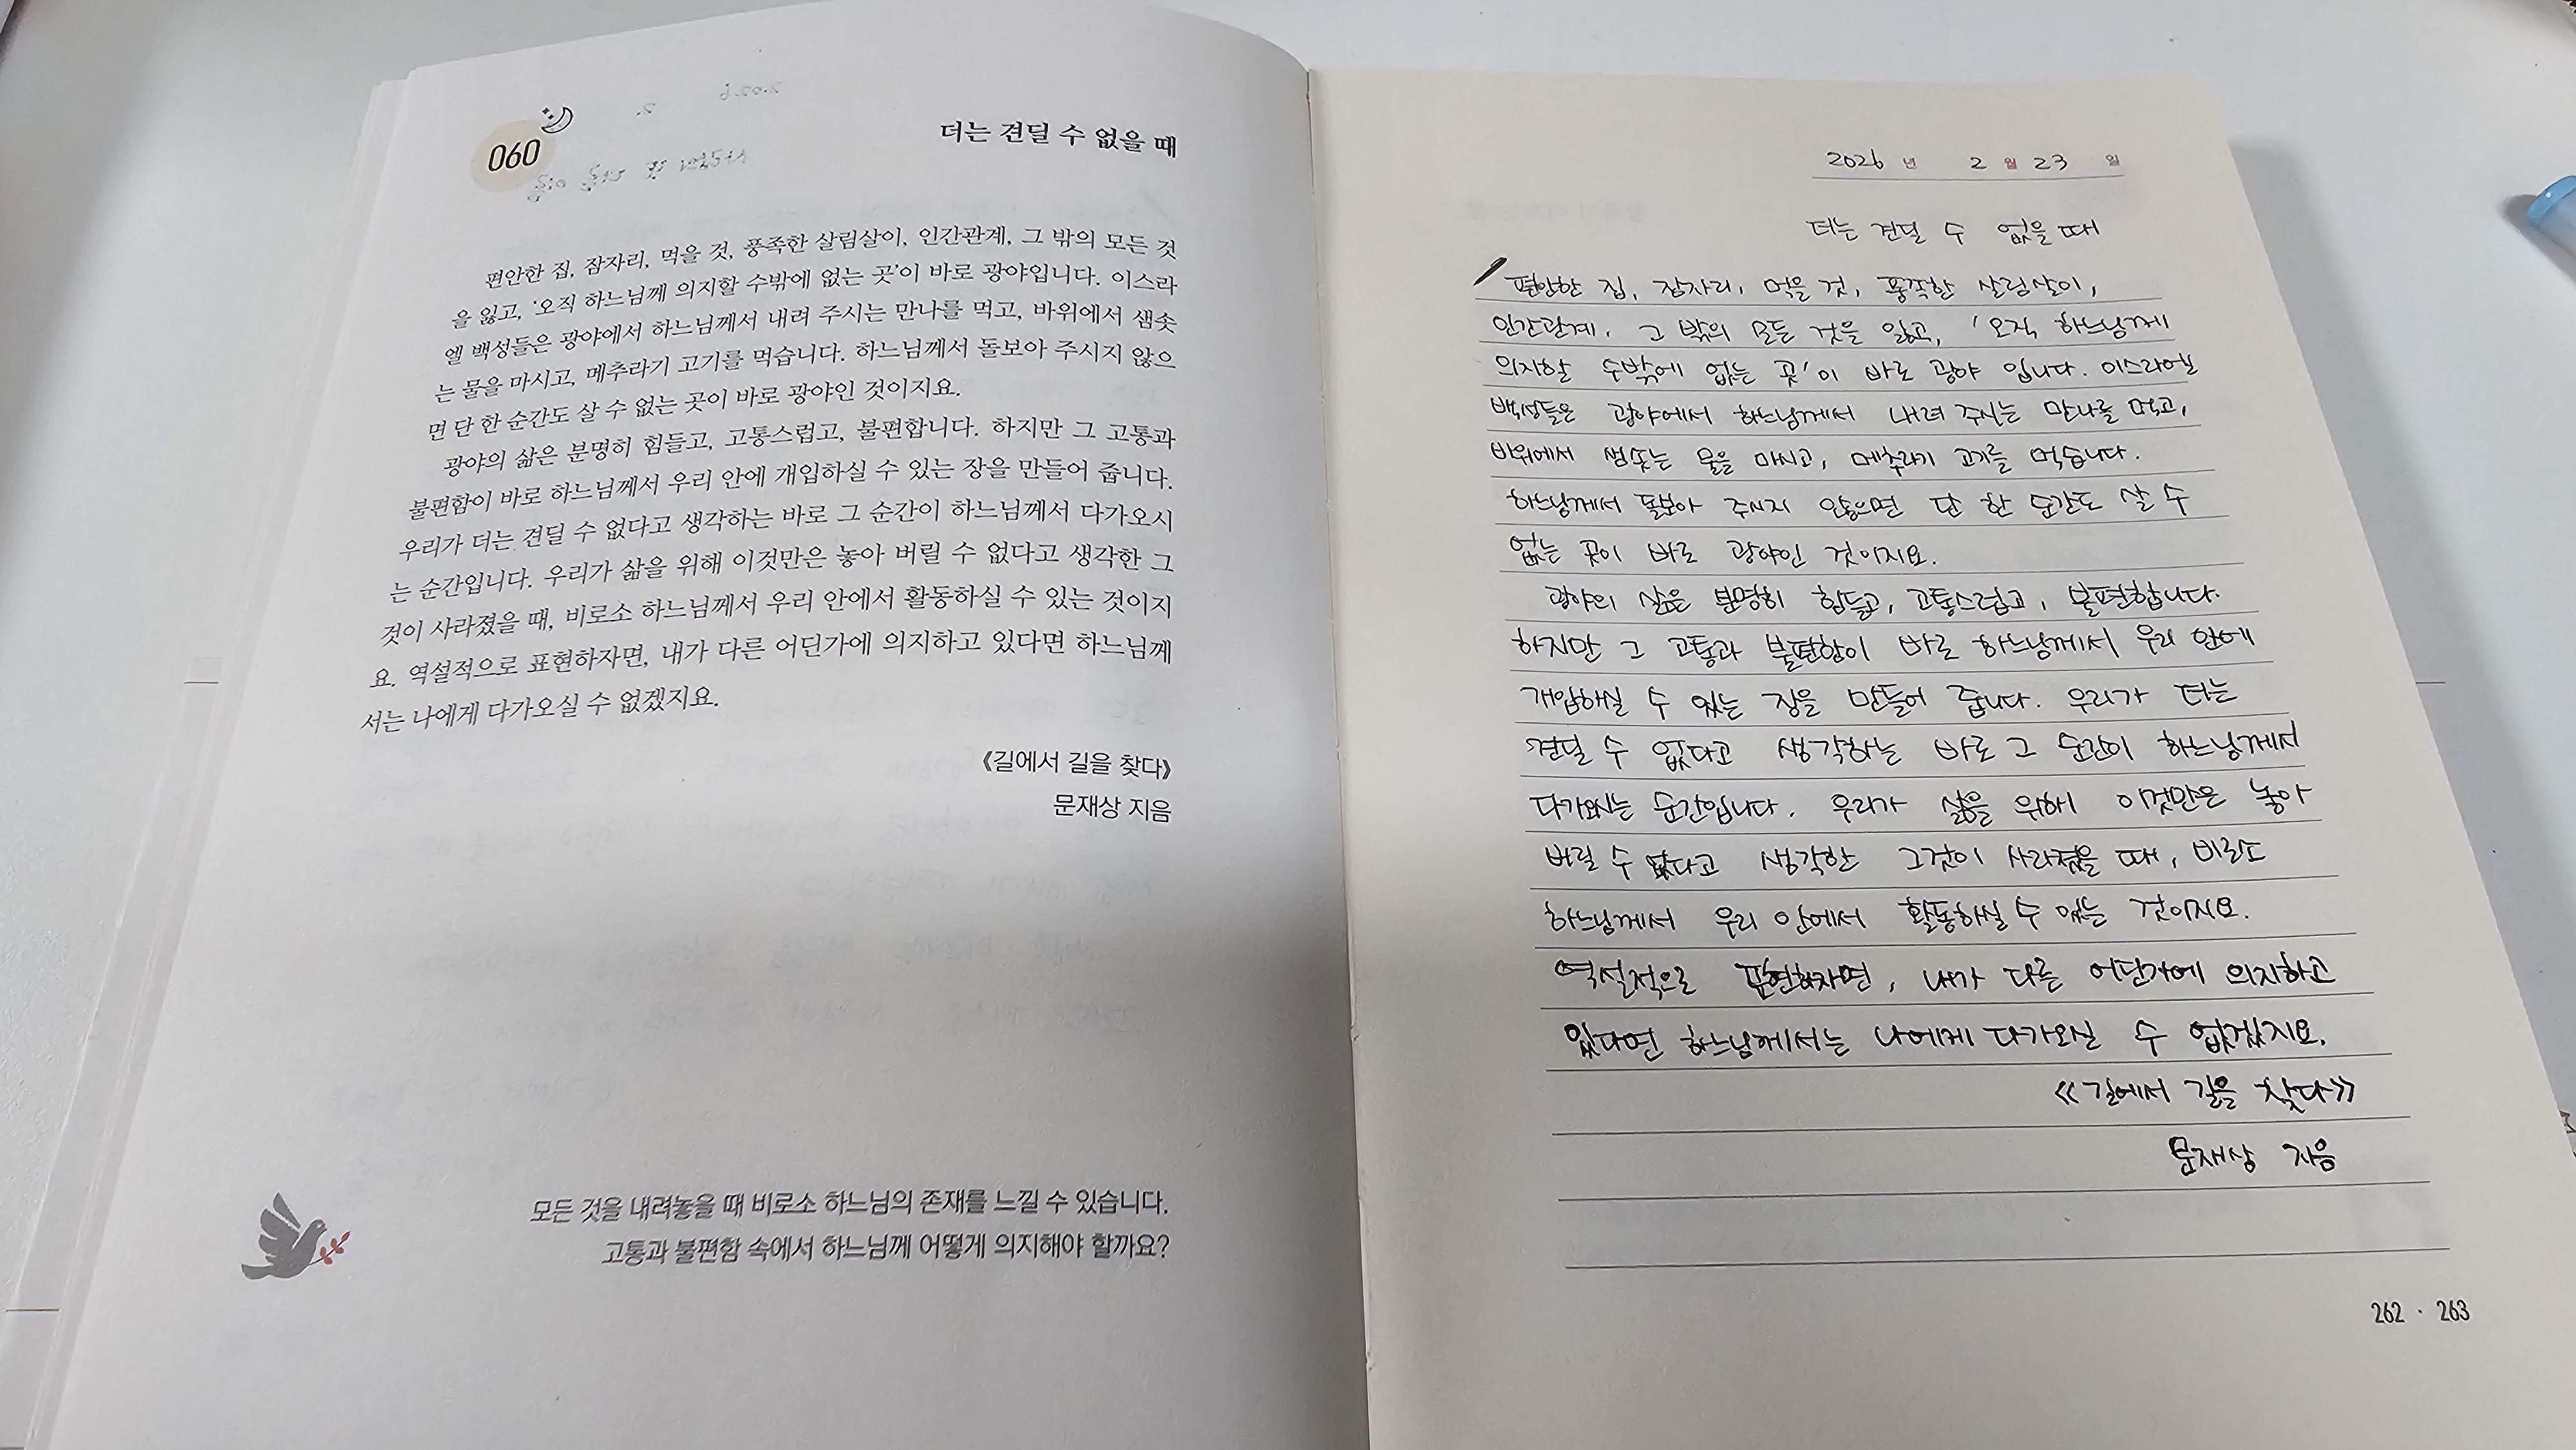 060
더는 견딜 수 없을 때
편안한 집, 잠자리, 먹을 것, 풍족한 살림살이, 인간관계, 그 밖의 모든 것
을 잃고, '오직 하느님께 의지할 수밖에 없는 곳'이 바로 광야입니다. 이스라
엘 백성들은 광야에서 하느님께서 내려 주시는 만나를 먹고, 바위에서 샘솟
는 물을 마시고, 메추라기 고기를 먹습니다. 하느님께서 돌보아 주시지 않으
면 단 한 순간도 살 수 없는 곳이 바로 광야인 것이지요.
광야의 삶은 분명히 힘들고, 고통스럽고, 불편합니다. 하지만 그 고통과
불편함이 바로 하느님께서 우리 안에 개입하실 수 있는 장을 만들어 줍니다.
우리가 더는 견딜 수 없다고 생각하는 바로 그 순간이 하느님께서 다가오시
는 순간입니다. 우리가 삶을 위해 이것만은 놓아 버릴 수 없다고 생각한 그
것이 사라졌을 때, 비로소 하느님께서 우리 안에서 활동하실 수 있는 것이지
요. 역설적으로 표현하자면, 내가 다른 어딘가에 의지하고 있다면 하느님께
서는 나에게 다가오실 수 없겠지요.
《길에서 길을 찾다》
문재상 지음
모든 것을 내려놓을 때 비로소 하느님의 존재를 느낄 수 있습니다.
고통과 불편함 속에서 하느님께 어떻게 의지해야 할까요?
2026 년 2 월 23 일
더는 견딜 수 없을 때
편안한 집, 잠자리, 먹을 것, 풍족한 살림살이,
인간관계, 그 밖의 모든 것을 잃고, '오직 하느님께
의지할 수밖에 없는 곳'이 바로 광야 입니다. 이스라엘
백성들은 광야에서 하느님께서 내려 주시는 만나를 먹고,
바위에서 샘솟는 물을 마시고, 메추라기 고기를 먹습니다.
하느님께서 돌보아 주시지 않으면 단 한 순간도 살 수
없는 곳이 바로 광야인 것이지요.
광야의 삶은 분명히 힘들고, 고통스럽고, 불편합니다.
하지만 그 고통과 불편함이 바로 하느님께서 우리 안에
개입하실 수 있는 장을 만들어 줍니다. 우리가 더는
견딜 수 없다고 생각하는 바로 그 순간이 하느님께서
다가오시는 순간입니다. 우리가 삶을 위해 이것만은 놓아
버릴 수 없다고 생각한 그것이 사라졌을 때, 비로소
하느님께서 우리 안에서 활동하실 수 있는 것이지요.
역설적으로 표현하자면, 내가 다른 어딘가에 의지하고
있다면 하느님께서는 나에게 다가오실 수 없겠지요.
《길에서 길을 찾다》
문재상 지음
262 · 263